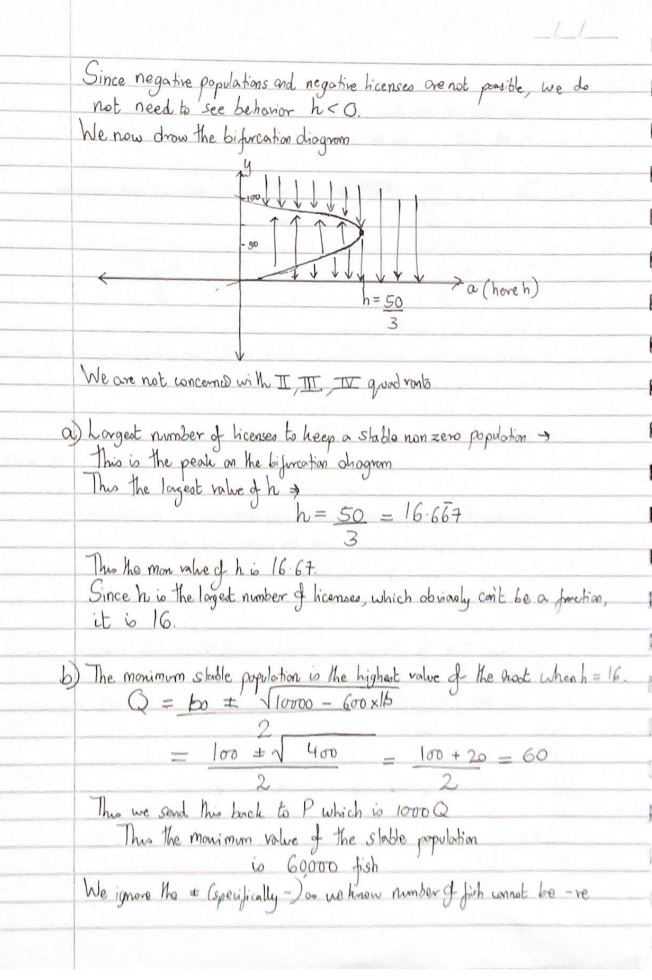 Since negative populations and negative licenses are not possible, we do
not need to see behavior h<0.
We now draw the bifurcation diagram
y
100
50
a (here h)
h = 50
3
We are not concerned with II, III, IV quadrants
a) Largest number of licenses to keep a stable non zero population →
This is the peak on the bifurcation diagram
Thus the largest value of h →
h = 50/3 = 16.667
Thus the max value of h is 16.67.
Since h is the largest number of licenses, which obviously can't be a fraction,
it is 16.
b) The maximum stable population is the highest value of the root when h = 16.
Q = 100 ± √10000 - 600 x 16
2
= 100 ± √400 / 2 = 100 + 20 / 2 = 60
Thus we send this back to P which is 1000Q
Thus the maximum value of the stable population
is 60,000 fish
We ignore the ± (specifically -) as we know number of fish cannot be -ve